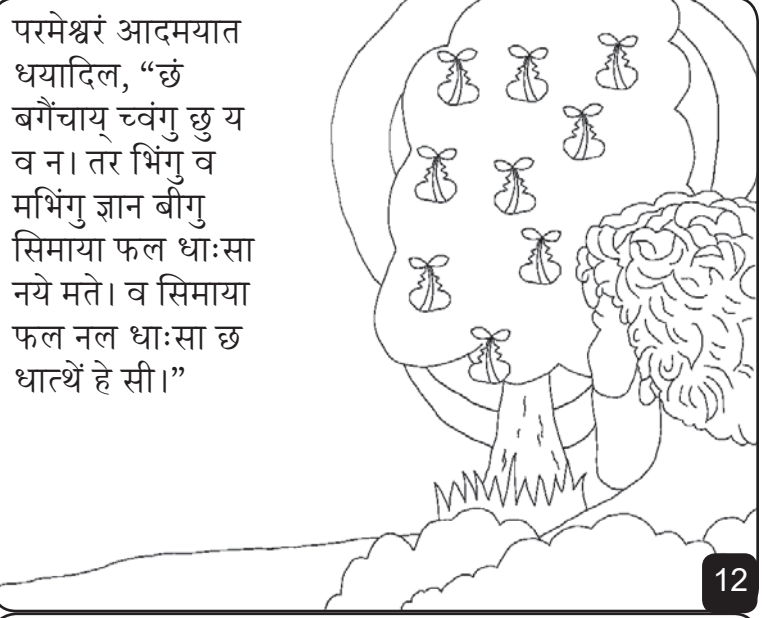 परमेश्वरं आदमयात
धयादिल, “छं
बगैंचाय् च्वंगु छु य
व न। तर भिंगु व
मभिंगु ज्ञान बीगु
सिमाया फल धाःसा
नये मते। व सिमाया
फल नल धाःसा छ
धात्थें हे सी।”
12